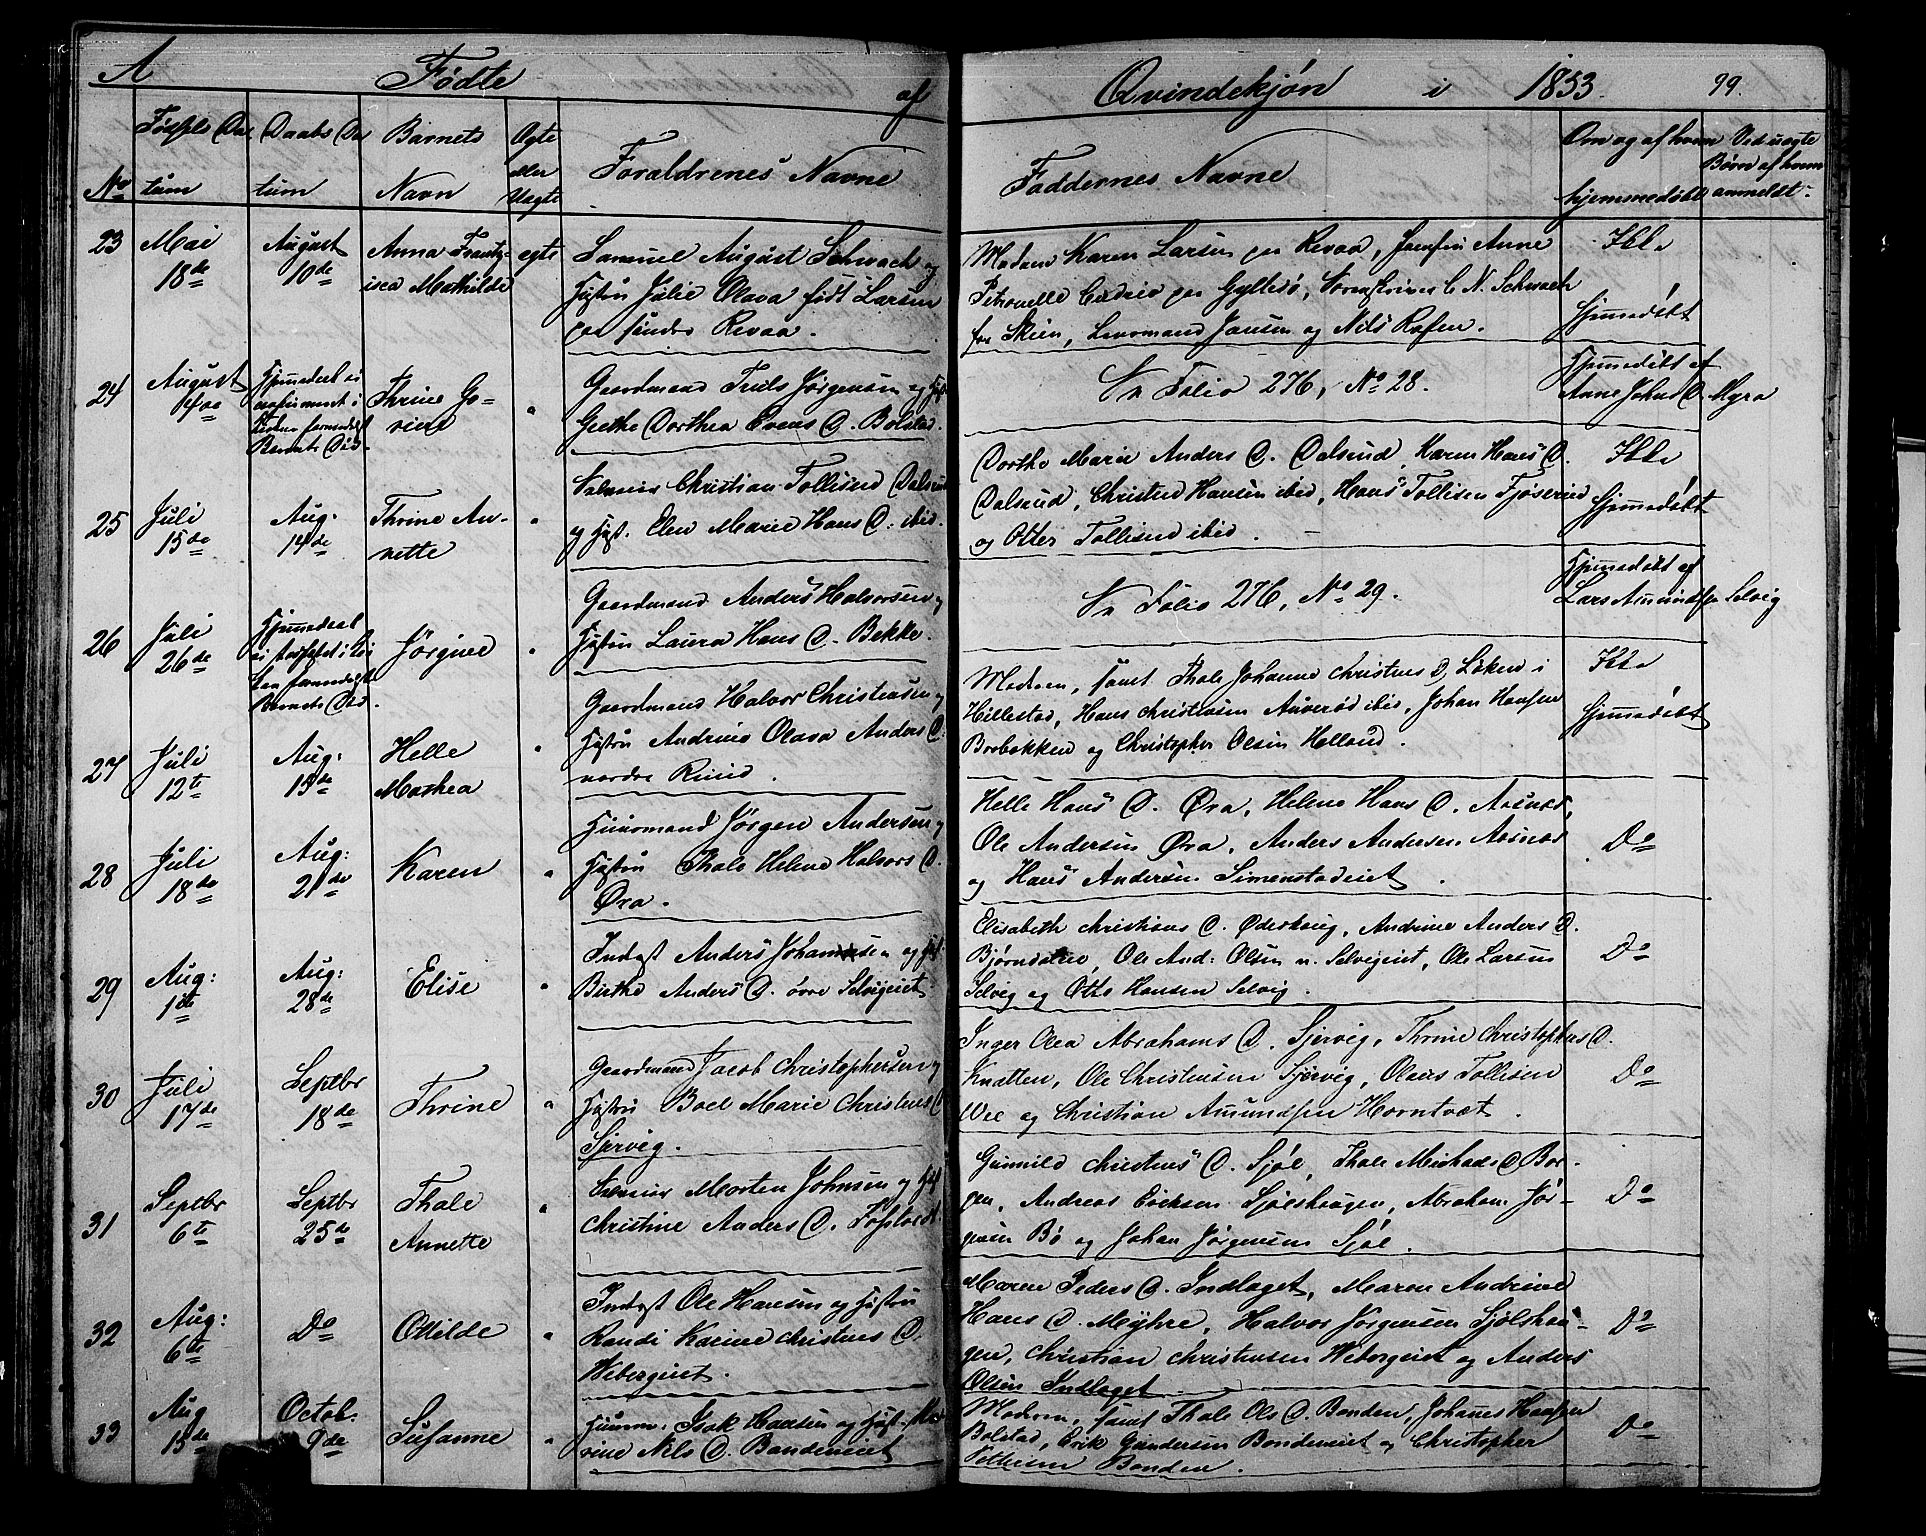 A Fødte af Qvindekjøn i 1853. 99.
No
Fødsels Da-
tum
Daabs Da
tum
Barnets
Navn
Egte
eller
Uegte
Foraldrenes Navne
Faddernes Navne
Om og af hvem
hjemmedøbt
Ved uegte
Børn af hvem
anmeldt
23
Mai
18de
August
10de
Anna Frantz-
isca Mathilde
egte
Samuel August Schwach og
Hustru Julie Olava født Larsen
paa søndre Revaa.
Madam Karen Larsen paa Revaa, Jomfru Anne
Petronelle paa Gyltesø, Sorenskriver C. N. Schwach
fra Skien, Jansen og Nils Rafen.
Ikke
hjemmedøbt
24
August
4de
Hjemmedøbt ei
i
Kirken formedelst
Barnets Død.
Thrine Go-
rine
"
Gaardmand Truls Jørgensen og Hust
Grethe Dorthea Evens D. Bolstad.
Vr Folio 276, No 28.
Hjemmedøbt af
Anne Johns D. Myra
25
Juli
15de
Aug:
14de
Thrine An-
nette
"
Christian Tollisen Dalsrud
og Hust. Elen Marie Hans D. ibid.
Dorthe Marie Anders D. Dalsrud, Karen Hans D.
Dalsrud, Christen Hansen ibid, Hans Tollisen
og Otter Tollisen ibid.
Ikke
hjemmedøbt
26
Juli
26de
Hjemmedøbt
ei
formedelst
Barnets Død.
Jørgine
"
Gaardmand Anders Halvorsen og
Hustru Laura Hans D. Bekke.
Vr Folio 276, No 29.
Hjemmedøbt af
Lars Amundsen Selvig
27
Juli
12te
Aug:
15de
Helle
Mathea
"
Gaardmand Halvor Christensen og
Hustru Andrine Olava Anders D.
nordre Ruud.
Moderen, samt Thale Johanne Christens D. Løken i
Hillestad, Hans Christensen Auverød ibid, Johan Hansen
Brebakken og Christopher Olsen Helland.
Ikke
hjemmedøbt
28
Juli
18de
Aug:
21de
Karen
"
Huusmand Jørgen Andersen og
Hustru Thale Helene Halvors D.
Øra.
Helle Hans D. Øra, Helene Hans D. Aasnæs,
Ole Andersen Øra, Anders Andersen Aasnæs
og Hans Andersen Simenstadeiet.
Do
29
Aug:
1te
Aug:
28de
Elise
"
Inderst Anders Johannesen og Hust
Birthe Anders D. øvre Selvigeiet
Elisabeth Christians D. Ødeskoug, Andrine Anders D.
Bjørndalen, Ole And: Olsen n. Selvigeiet, Ole Larsen
Selvig og Otto Hansen Selvig.
Do
30
Juli
17de
Septbr
18de
Thrine
"
Gaardmand Jacob Christophersen og
Hustru Boel Marie Christens D
Sjervig.
Inger Olea Abrahams D. Sjervig, Thrine Christophers D.
Knatten, Ole Christensen Sjervig, Olaus Tollisen
Vee og Christian Amundsen Horntvet.
Do
31
Septbr
6te
Septbr
25de
Thale
Annette
"
Morten Johnsen og Hust
Christine Anders D.
Gunnild Christens D. Sjøl, Thale Michaels D. Bor-
gen, Andreas Eriksen Sjølshaugen, Abraham Jør-
gensen Bø og Johan Jørgensen Sjøl.
Do
32
Aug:
6te
Do
Otilde
"
Inderst Ole Hansen og Hustru
Randi Karine Christens D.
Webergeiet.
Maren Peders D. Indlaget, Maren Andrine
Hans D. Myhre, Halvor Jørgensen Sjølshau-
gen, Christian Christensen Webergeiet og Anders
Olsen Indlaget
Do
33
Aug
15de
Octob.
9de
Susanne
"
Huusm. Isak Hansen og Hust. Ma-
rine Nils D. Bondeneiet
Moderen, samt Thale Ols D. Bonden, Johannes Hansen
Bolstad, Erik Gundersen Bondeneiet og Christopher
Pettersen Bonden.
Do